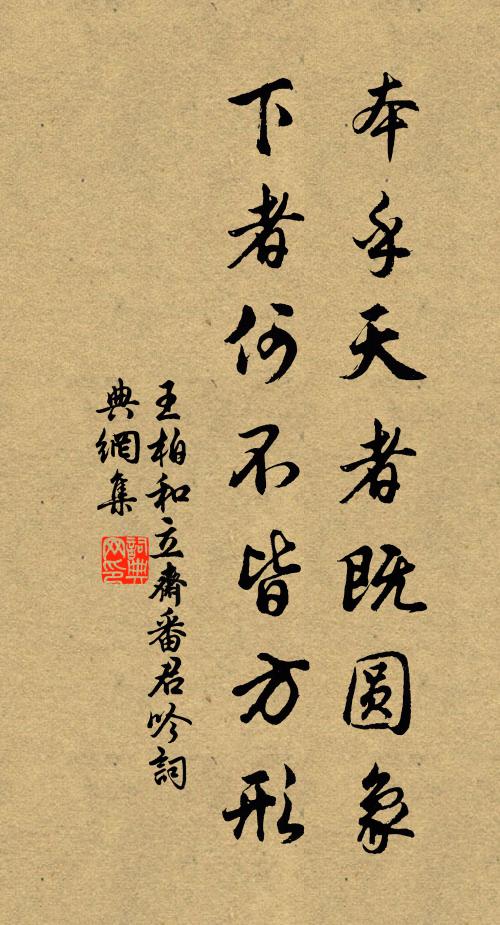 本乎天者既圆象
下者何不皆方形
王柏和立齋番君吟詞
典網集
詞典
网印